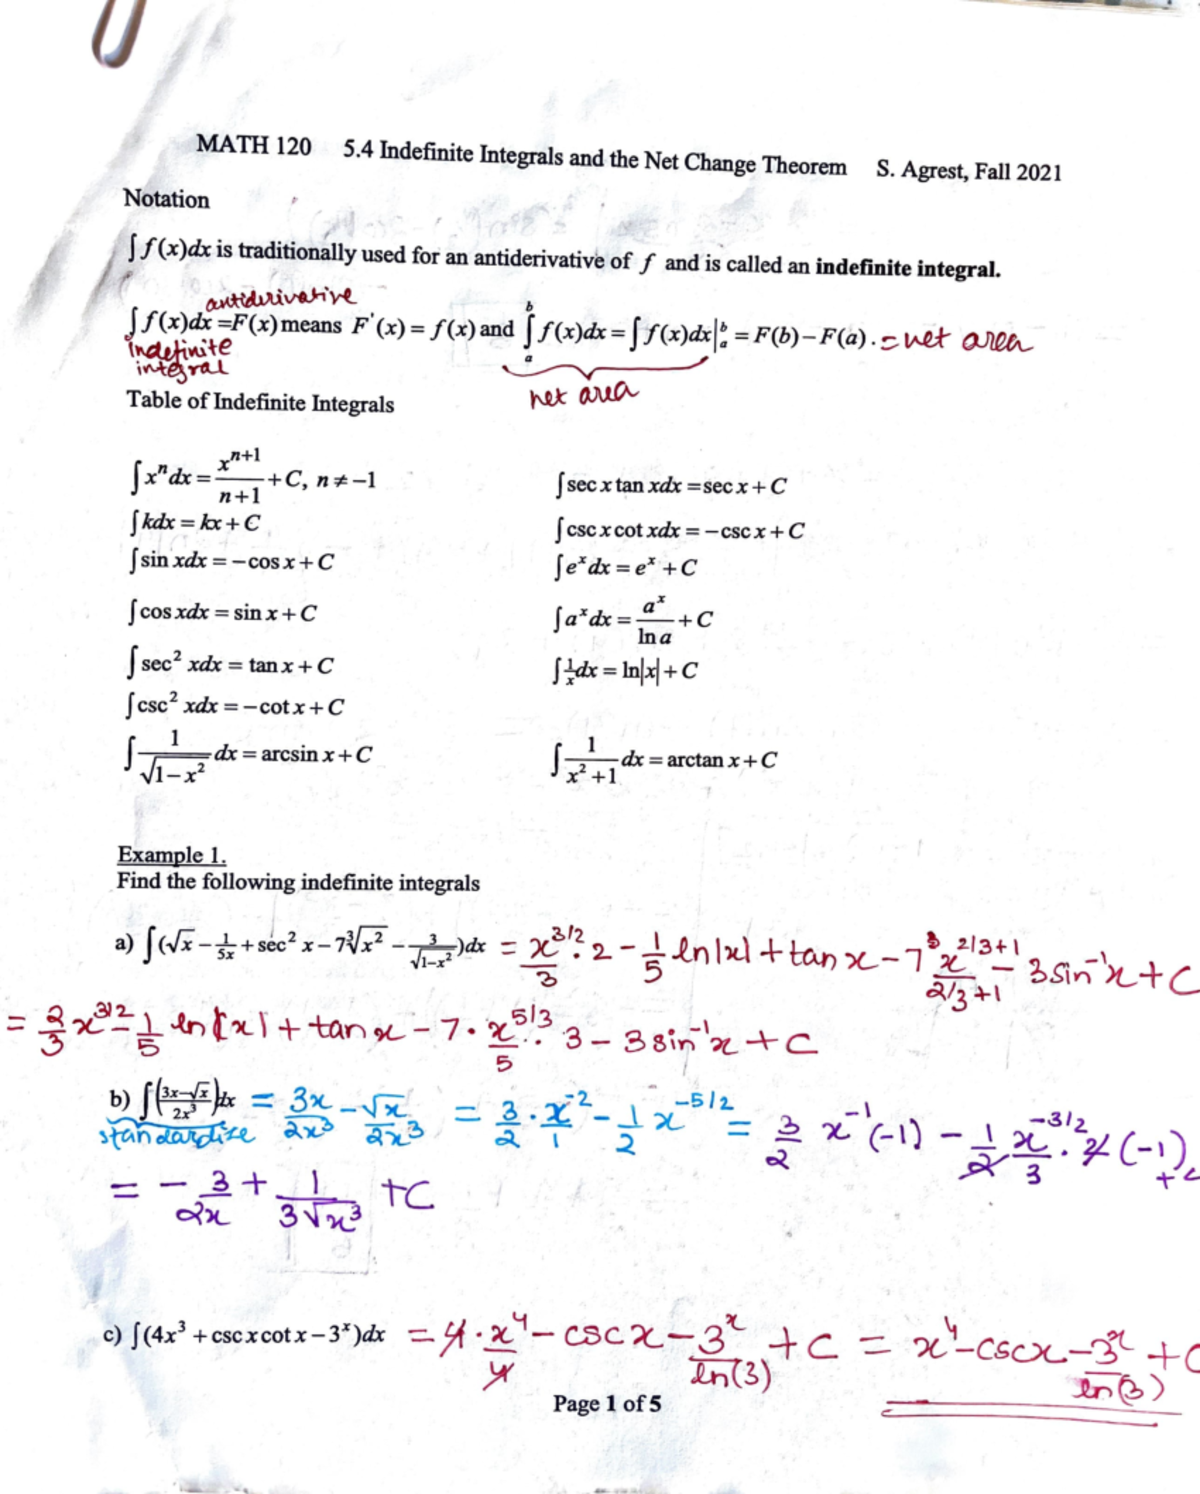 MATH 120 5.4 Indefinite Integrals and the Net Change Theorem S. Agrest, Fall 2021
Notation
∫f(x)dx is traditionally used for an antiderivative of f and is called an indefinite integral.
antiderivative
∫f(x)dx =F(x) means F'(x) = f(x) and ∫_a^b f(x)dx = ∫f(x)dx|_a^b = F(b) − F(a). = net area
indefinite
integral
net area
Table of Indefinite Integrals
∫xⁿdx = x^(n+1)/(n+1) + C, n ≠ −1
∫sec x tan xdx = sec x + C
∫kdx = kx + C
∫csc x cot xdx = −csc x + C
∫sin xdx = −cos x + C
∫eˣdx = eˣ + C
∫cos xdx = sin x + C
∫aˣdx = aˣ/ln a + C
∫sec² xdx = tan x + C
∫1/x dx = ln|x| + C
∫csc² xdx = −cot x + C
∫1/√(1−x²) dx = arcsin x + C
∫1/(x²+1) dx = arctan x + C
Example 1.
Find the following indefinite integrals
a) ∫(√x − 1/5x + sec² x − 7∛x² − 3/√(1−x²))dx = x^(3/2)/3 · 2 − 1/5 ln|x| + tan x − 7 x^(2/3+1)/(2/3+1) − 3 sin⁻¹x + C
= 2/3 x^(3/2) − 1/5 ln|x| + tan x − 7 · x^(5/3)/5 · 3 − 3 sin⁻¹x + C
b) ∫((3x−√x)/2x³)dx = 3x/2x³ − √x/2x³ = 3/2 · x⁻²/1 − 1/2 x^(−5/2) = 3/2 x⁻¹(−1) − 1/2 x^(−3/2)/3 · 2(−1) + C
standardize
= − 3/2x + 1/3√x³ + C
c) ∫(4x³ + csc x cot x − 3ˣ)dx = 4 · x⁴/4 − csc x − 3ˣ/ln(3) + C = x⁴ − csc x − 3ˣ/ln(3) + C
Page 1 of 5